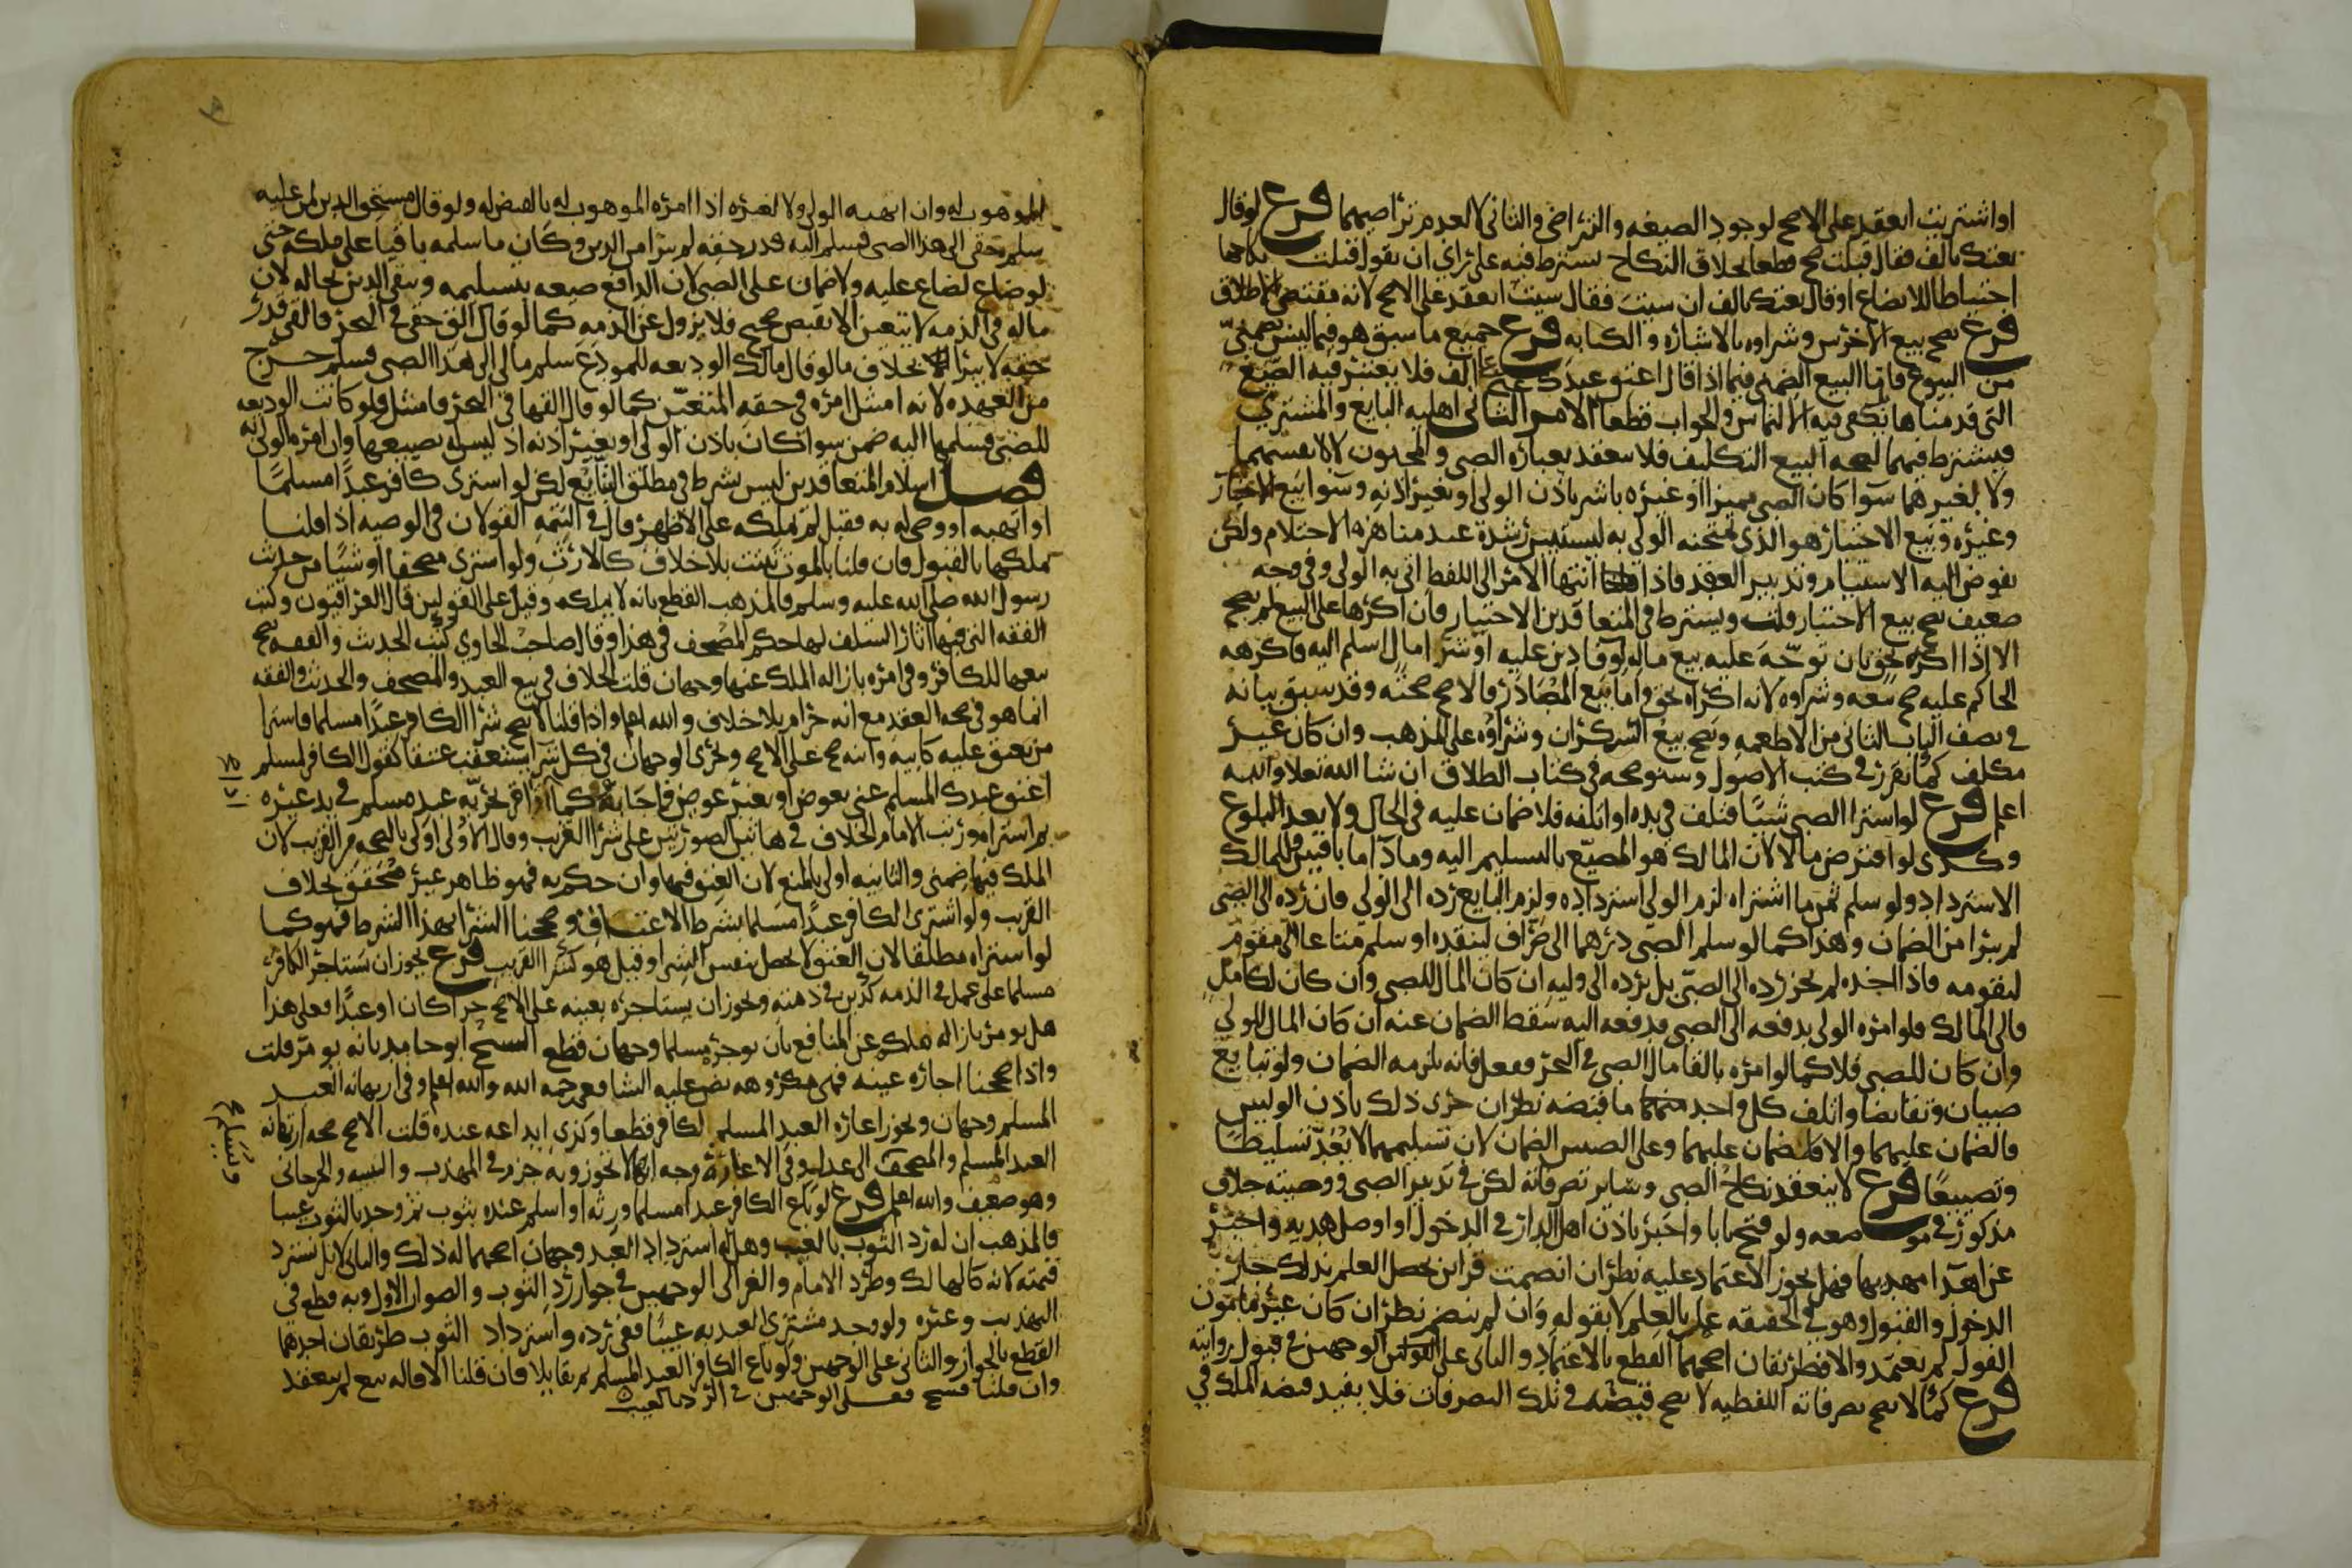 او اشتريت انعقد على الاصح لوجود الصيغه والتراضي والثاني لا لعدم تراضيهما فرع لو قال
بعتك بالف فقال قبلت صح قطعا بخلاف النكاح يشترط فيه على راي ان يقول قبلت نكاحها
احتياطا للابضاع او قال بعتك بالف ان شيت فقال شيت انعقد على الاصح لانه مقتضى الاطلاق
فرع يصح بيع الاخرس وشراوه بالاشاره والكتابه فرع جميع ما سبق هو فيما ليس بضمني
من البيوع فاما البيع الضمني فيما اذا قال اعتق عبدك عني على الف فلا يعتبر فيه الصيغ
التي قدمناها بل يكفي فيه الالتماس والجواب قطعا الامر الثاني اهليه البايع والمشتري
فيشترط فيهما لصحه البيع التكليف فلا ينعقد بعباره الصبي والمجنون لا لانفسهما
ولا لغيرهما سوا كان الصبي مميزا او غيره باشر باذن الولي او بغير اذنه وسوا بيع الاختبار
وغيره وبيع الاختبار هو الذي يمتحنه الولي به ليستبين رشده عند مناهزه الاحتلام ولكن
يفوض اليه الاستيام وتدبير العقد فاذا انتهى الامر الى اللفظ اتى به الولي وفي وجه
ضعيف يصح بيع الاختبار قلت ويشترط في المتعاقدين الاختيار فان اكرها على البيع لم يصح
الا اذا اكره بحق بان توجه عليه بيع ماله لوفا دين عليه او شرا مال اسلم اليه فاكرهه
الحاكم عليه صح بيعه وشراوه لانه اكراه بحق واما بيع المصادر فالاصح صحته وقد سبق بيانه
في نصف الباب الثاني من الاطعمه ويصح بيع السكران وشراوه على المذهب وان كان غير
مكلف كما تقرر في كتب الاصول وسنوضحه في كتاب الطلاق ان شا الله تعلا والله
اعلم فرع لو اشترا الصبي شيئا فتلف في يده او اتلفه فلا ضمان عليه في الحال ولا بعد البلوغ
وكذى لو اقترض مالا لان المالك هو المضيع بالتسليم اليه وما داما باقيين فللمالك
الاسترداد ولو سلم ثمن ما اشتراه لزم الولي استرداده ولزم البايع رده الى الولي فان رده الى الصبي
لم يبرا من الضمان وهذا كما لو سلم الصبي درهما الى صراف لينقده او سلم متاعا الى مقوم
ليقومه فاذا اخذه لم يجز رده الى الصبي بل يرده الى وليه ان كان المال للصبي وان كان لكامل
فالى المالك فلو امره الولي بدفعه الى الصبي فدفعه اليه سقط الضمان عنه ان كان المال للولي
وان كان للصبي فلا كما لو امره بالقا مال الصبي في البحر ففعل فانه يلزمه الضمان ولو تبايع
صبيان وتقابضا واتلف كل واحد منهما ما قبضه نظر ان جرى ذلك باذن الوليين
فالضمان عليهما والا فلا ضمان عليهما وعلى الصبيين الضمان لان تسليمهما لا يعد تسليطا
وتضييعا فرع لا ينعقد نكاح الصبي وساير تصرفاته لكن في تدبير الصبي ووصيته خلاف
مذكور في موضعه ولو فتح بابا واخبر باذن اهل الدار في الدخول او اوصل هديه واخبر
عن اهدا مهديها فهل يجوز الاعتماد عليه نظر ان انضمت قراين تحصل العلم بذلك جاز
الدخول والقبول وهو في الحقيقه عمل بالعلم لا بقوله وان لم ينضم نظر ان كان غير مامون
القول لم يعتمد والا فطريقان اصحهما القطع بالاعتماد والثاني على الوجهين في قبول روايته
فرع كما لا تصح تصرفاته اللفظيه لا يصح قبضه في تلك التصرفات فلا يفيد قبضه الملك في
الموهوب له وان اتهبه الولي ولا لغيره اذا امره الموهوب له بالقبض له ولو قال مستحق الدين لمن عليه
سلم حقي الى هذا الصبي فسلم اليه قدر حقه لم يبرا من الدين وكان ما سلمه باقيا على ملكه حتى
لو ضاع لضاع عليه ولا ضمان على الصبي لان الدافع ضيعه بتسليمه ويبقى الدين بحاله لان
ما له في الذمه لا يتعين الا بقبض صحيح فلا يزول عن الذمه كما لو قال الق حقي في البحر فالقى قدر
حقه لا يبرا بخلاف ما لو قال مالك الوديعه للمودع سلم مالي الى هذا الصبي فسلم خرج
من العهده لانه امتثل امره في حقه المتعين كما لو قال القها في البحر فامتثل ولو كانت الوديعه
للصبي فسلمها اليه ضمن سوا كان باذن الولي او بغير اذنه اذ ليس له تضييعها وان امره الولي به
فصل اسلام المتعاقدين ليس بشرط في مطلق التبايع لكن لو اشترى كافر عبدا مسلما
او اتهبه او وصى له به فقبل لم يملكه على الاظهر قال في التتمه القولان في الوصيه اذا قلنا
يملكها بالقبول فان قلنا بالموت ثبتت بلا خلاف كالارث ولو اشترى مصحفا او شيئا من حديث
رسول الله صلى الله عليه وسلم فالمذهب القطع بانه لا يملكه وقيل على القولين قال العراقيون وكتب
الفقه التي فيها اثار السلف لها حكم المصحف في هذا وقال صاحب الحاوي كتب الحديث والفقه يصح
بيعها للكافر وفي امره بازاله الملك عنها وجهان قلت الخلاف في بيع العبد والمصحف والحديث والفقه
انما هو في صحه العقد مع انه حرام بلا خلاف والله اعلم واذا قلنا لا يصح شرا الكافر عبدا مسلما فاشترا
من يعتق عليه كابيه وابنه صح على الاصح ويجري الوجهان في كل شرا يستعقب عتقا كقول الكافر لمسلم
اعتق عبدك المسلم عني بعوض او بغير عوض فاجابه وكما اذا اقر بحريه عبد مسلم في يد غيره
ثم اشتراه ورتب الامام الخلاف في هاتين الصورتين على شرا القريب وقال الاولى اولى بالصحه من القريب لان
الملك فيها ضمني والثانيه اولى بالمنع لان العتق فيها وان حكم به فهو ظاهر غير محقق بخلاف
القريب ولو اشترى الكافر عبدا مسلما بشرط الاعتاق وصححنا الشرا بهذا الشرط فهو كما
لو اشتراه مطلقا لان العتق لا يحصل بنفس الشرا وقيل هو كشرا القريب فرع يجوز ان يستاجر الكافر
مسلما على عمل في الذمه كدين في ذمته ويجوز ان يستاجره بعينه على الاصح حرا كان او عبدا فعلى هذا
هل يومر بازاله ملكه عن المنافع بان يوجره مسلما وجهان قطع الشيخ ابو حامد بانه يومر قلت
واذا صححنا اجاره عينه فهي مكروهه نص عليه الشافعي رحمه الله والله اعلم وفي ارتهانه العبد
المسلم وجهان ويجوز اعاره العبد المسلم لكافر قطعا وكذى ايداعه عنده قلت الاصح صحه ارتهانه
العبد المسلم والمصحف الى عدل وفي الاعاره وجه انها لا تجوز وبه جزم في المهذب والتنبيه والجرجاني
وهو ضعيف والله اعلم فرع لو باع الكافر عبدا مسلما ورثه او اسلم عنده بثوب ثم وجد بالثوب عيبا
فالمذهب ان له رد الثوب بالعيب وهل له استرداد العبد وجهان اصحهما له ذلك والثاني لا بل يسترد
قيمته لانه كالهالك وطرد الامام والغزالي الوجهين في جواز رد الثوب والصواب الاول وبه قطع في
التهذيب وغيره ولو وجد مشتري العبد به عيبا ففي رده واسترداد الثوب طريقان احدهما
القطع بالجواز والثاني على الوجهين ولو باع الكافر العبد المسلم ثم تقايلا فان قلنا الاقاله بيع لم ينعقد
وان قلنا فسخ فعلى الوجهين في الرد بالعيب